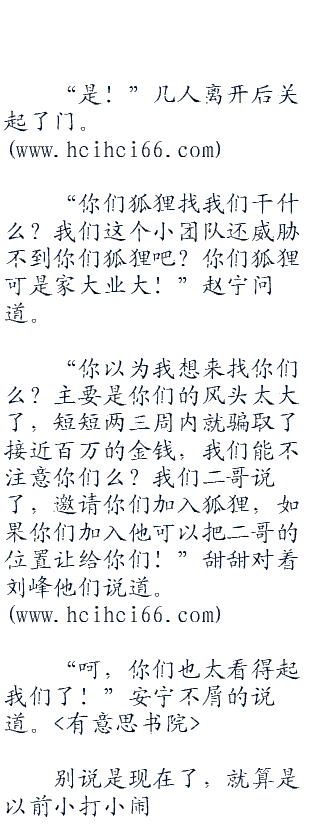 “是！”几人离开后关
起了门。
(www.hcihci66.com)
“你们狐狸找我们干什
么？我们这个小团队还威胁
不到你们狐狸吧？你们狐狸
可是家大业大！”赵宁问
道。
“你以为我想来找你们
么？主要是你们的风头太大
了，短短两三周内就骗取了
接近百万的金钱，我们能不
注意你们么？我们二哥说
了，邀请你们加入狐狸，如
果你们加入他可以把二哥的
位置让给你们！”甜甜对着
刘峰他们说道。
(www.hcihci66.com)
“呵，你们也太看得起
我们了！”安宁不屑的说
道。<有意思书院>
别说是现在了，就算是
以前小打小闹